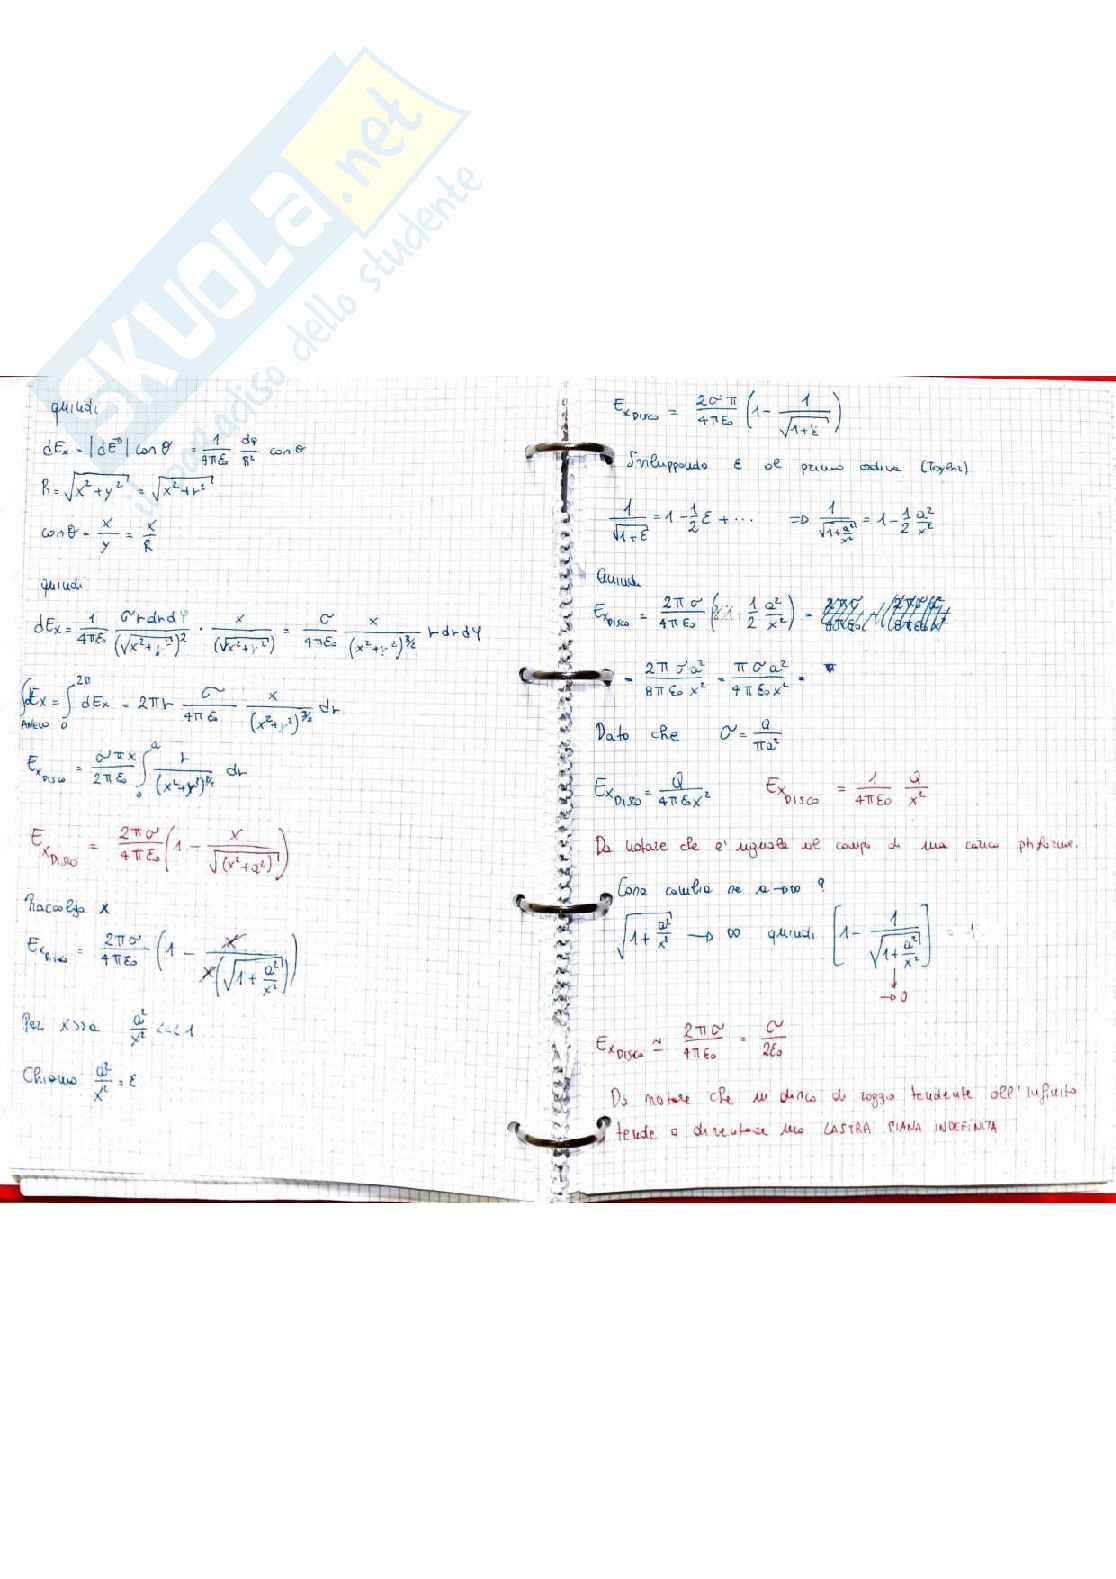 SKUOLA.net
il paradiso dello studente
quindi
dEx = |dE→| cosθ = 1/4πε₀ dq/R² cosθ
R = √x²+y² = √x²+r²
cosθ = x/y = x/R
quindi
dEx = 1/4πε₀ σrdrdφ/(√x²+r²)² · x/(√x²+r²) = σ/4πε₀ x/(x²+r²)^3/2 rdrdφ
∫ANELLO dEx = ∫₀^2π dEx = 2πr σ/4πε₀ x/(x²+r²)^3/2 dr
Ex DISCO = σπx/2πε₀ ∫₀^a r/(x²+r²)^3/2 dr
Ex DISCO = 2πσ/4πε₀ (1 - x/√(x²+a²))
Raccolgo x
Ex Disco = 2πσ/4πε₀ (1 - x/x(√1+a²/x²))
Per x>>a a²/x² <<<1
Chiamo a²/x² = ε
Ex DISCO = 2σπ/4πε₀ (1 - 1/√1+ε)
Sviluppando ε al primo ordine (Taylor)
1/√1+ε = 1 - 1/2 ε + ... => 1/√1+a²/x² = 1 - 1/2 a²/x²
Quindi
Ex DISCO = 2πσ/4πε₀ ( 1/2 a²/x²) =
= 2πσa²/8πε₀x² = πσa²/4πε₀x² =
Dato che σ = Q/πa²
Ex DISCO = Q/4πε₀x² Ex DISCO = 1/4πε₀ Q/x²
Da notare che e' uguale al campo di una carica puntiforme.
Cosa cambia se a→∞ ?
√1+a²/x² → ∞ quindi [1 - 1/√1+a²/x²] = 1
↓
→0
Ex DISCO ≃ 2πσ/4πε₀ = σ/2ε₀
Da notare che un disco di raggio tendente all'infinito
tende a diventare una LASTRA PIANA INDEFINITA